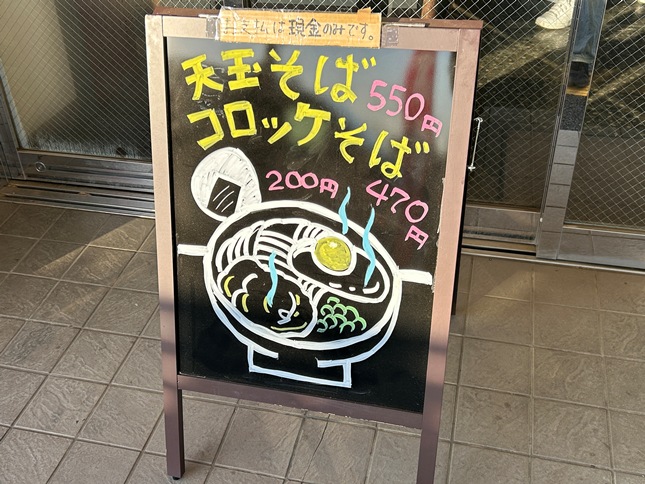 お支払は現金のみです。
天玉そば 550円
コロッケそば
200円 470円